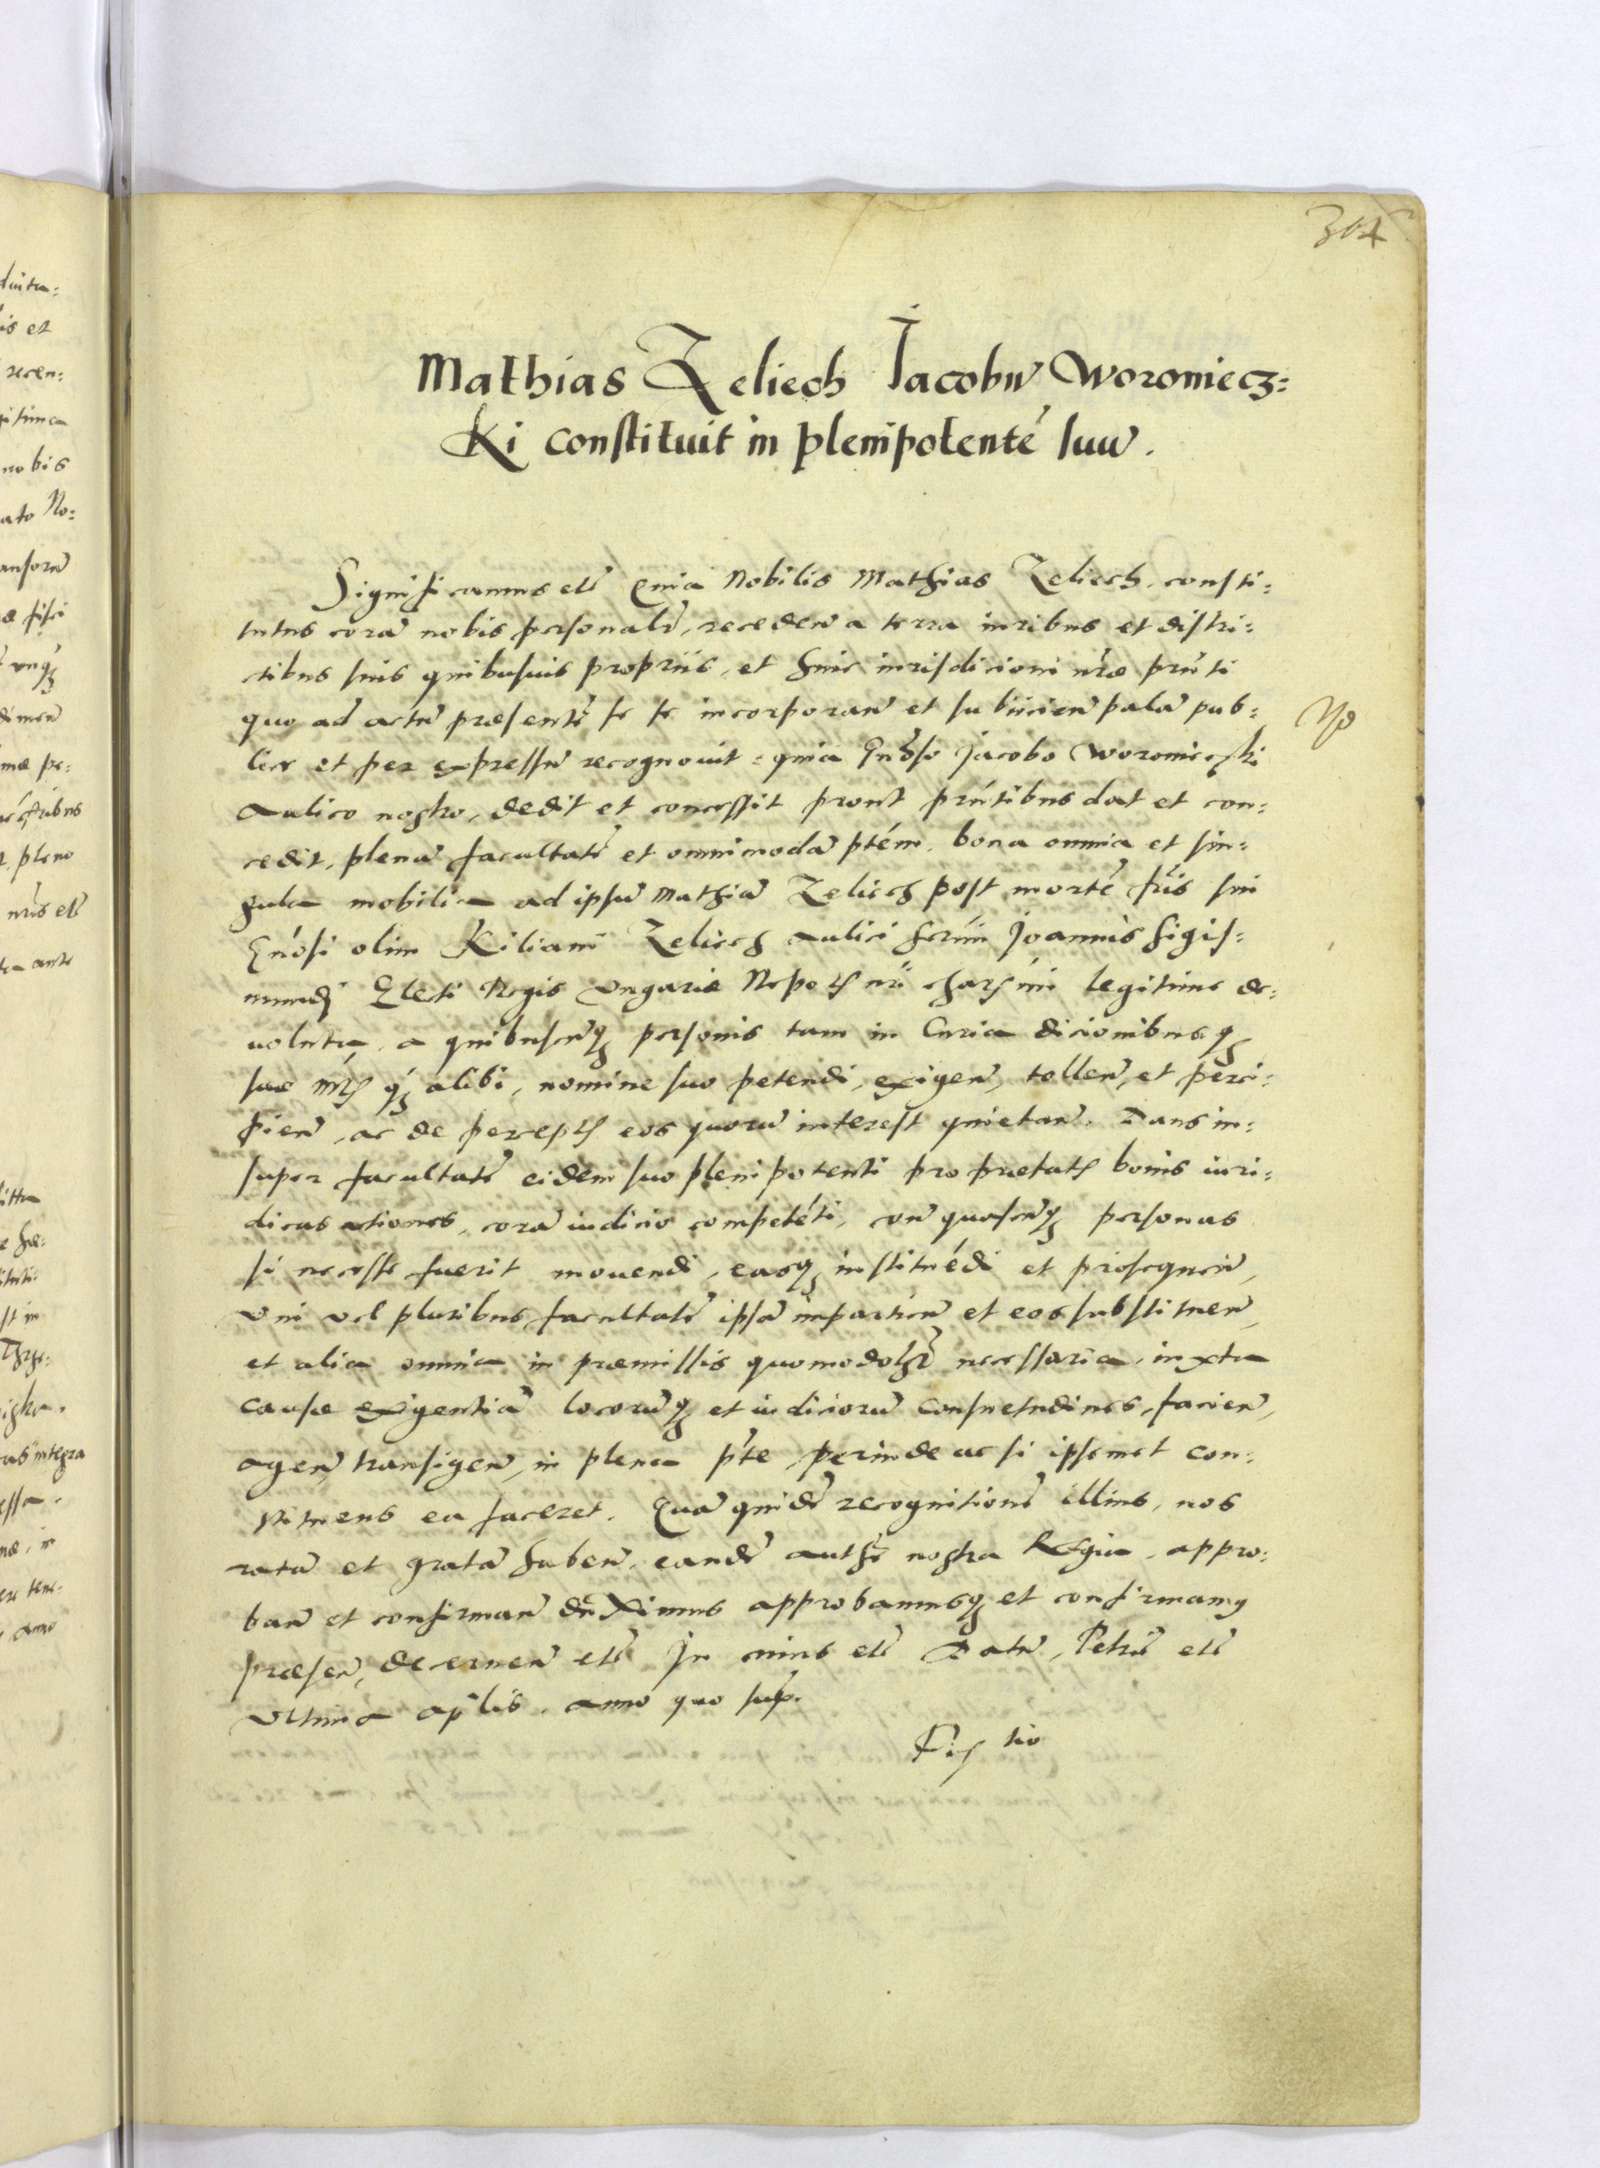 304
Mathias Zeliech Jacobũ Woroniecz=
ki constituit in plenipotenté suũ.
Significamus etc̃ Quia Nobilis Mathias Zeliech, consti=
tutus corã nobis personalr̃, receden̄ a terra iuribus et distri=
ctibus suis quibusuis propriis, et huic iurisdicioni nr̃æ pr̃nti
quo ad actũ præsentẽ se se incorporan̄ et subiicien̄ palã pub=
lice et per expressũ recognouit: quia Gñoso Jacobo Woroniecski
Aulico nostro, dedit et concessit prout pr̃ntibus dat et con=
cedit, plenã facultatẽ et omnimodã ptém, bona omnia et sin=
gula mobilia ad ipsũ Mathiã Zeliech post morté fr̃is sui
Gnósi olim Kiliani Zeliech Aulici Serm̃i Joannis Sigis=
mundi Electi Regis Vngariæ Nepotis nr̃i charismi legitime de=
uoluta, a quibuscunq̃ personis tam in Curia dicionibusq̃
suæ Mtis q̃ alibi, nomine suo petendi, exigen̄, tollen̄, et perci=
pien̄, ac de perceptis eos quorũ interest quietan̄. Dans in=
super facultatẽ eidem suo plenipotenti pro prætatis bonis iuri=
dicas actiones, corã iudicio competéti, con̄ quascunq̃ personas
si necesse fuerit mouendi, easq̃ instituédi et prosequen̄,
vni vel pluribus facultatẽ ipsã impartien̄ et eos substituen̄,
et alia omnia in præmissis quomodolꝫ necessaria, iuxta
causæ exigentiã locorũq̃ et iudiciorũ consuetudines, facien̄,
agen̄ transigen̄, in plena pt́e, perinde ac si ipsemet con=
stituens ea faceret. Quã quidẽ recognitionẽ illius, nos
ratã et gratã haben̄, eandẽ authr̃e nostra Regia, appro=
ban̄ et confirman̄ duximus approbamusq̃ et confirmamus
præsen̄, decernen̄ etc̃ In cuius etc̃ Datũ, Petr̃ etc̃
Vltima aplis, anno quo sup̃.